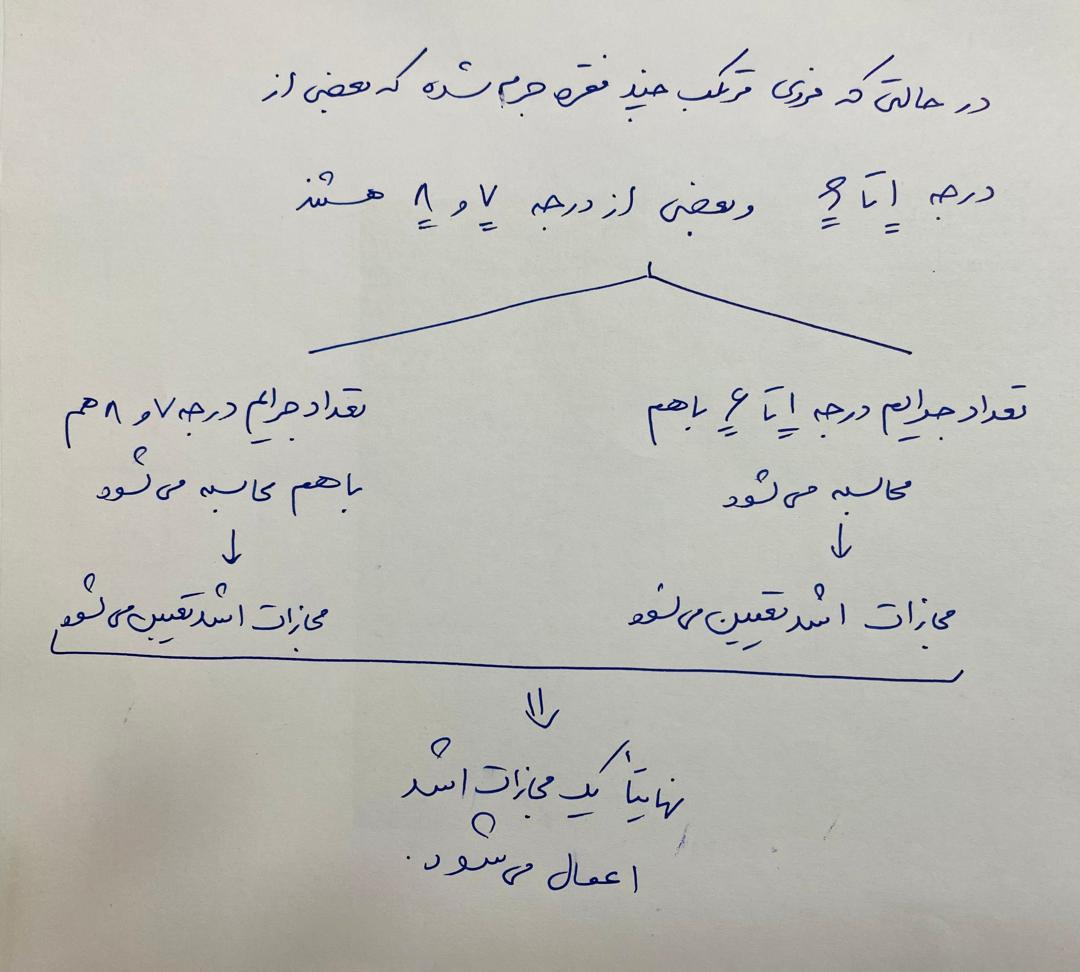 در حالتی که فردی مرتکب چند فقره جرم شده که بعضی از
درجه ۱ تا ۶ و بعضی از درجه ۷ و ۸ هستند
تعداد جرایم درجه ۱ تا ۶ باهم
محاسبه می‌شود
↓
مجازات اشد تعیین می‌شود
تعداد جرایم درجه ۷ و ۸ هم
باهم محاسبه می‌شود
↓
مجازات اشد تعیین می‌شود
⇓
نهایتاً یک مجازات اشد
اعمال می‌شود.